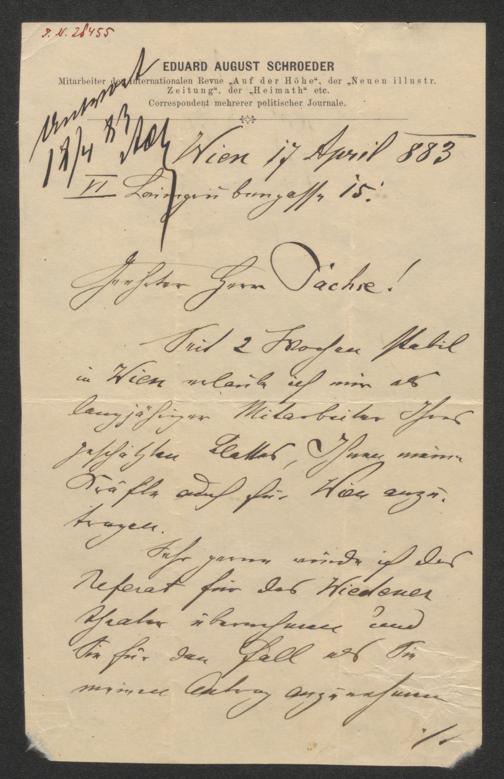 I. N. 28455
EDUARD AUGUST SCHROEDER
Mitarbeiter der internationalen Revue „Auf der Höhe“, der „Neuen illustr.
Zeitung“, der „Heimath“ etc.
Correspondent mehrerer politischer Journale.
Antwort
18/4 83
Wien 17 April 883
VI Laimgrubengasse 15.
Geehrter Herr Sachse!
Seit 2 Wochen stabil
in Wien erlaube ich mir als
langjähriger Mitarbeiter Ihres
geschätzten Blattes, Ihnen meine
Kräfte auch für Wien anzu-
tragen.
Sehr gerne würde ich das
Referat für das Wiedener
Theater übernehmen und
Sie für den Fall als Sie
meinen Antrag anzunehmen
./.